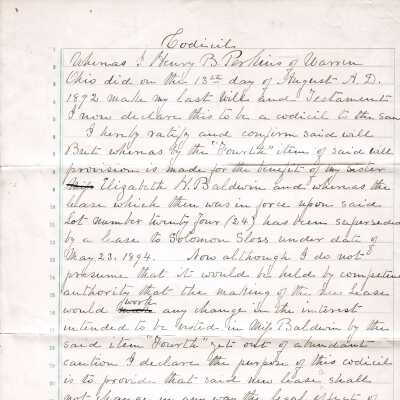 Codicil
Whereas I Henry B. Perkins of Warren
Ohio did on the 13th day of August A. D.
1892 make my last Will and Testament
I now declare this to be a codicil to the same
I hereby ratify and confirm said will
But whereas by the "Fourth" item of said will
provision is made for the benefit of my sister
Elizabeth A. Baldwin and whereas the
lease which then was in force upon said
Lot number twenty four (24) has been superseded
by a lease to Solomon Sloss under date of
May 23. 1894. Now although I do not
presume that it would be held by competent
authority that the making of the new lease
would work any change in the interest
intended to be vested in Miss Baldwin by the
said item "Fourth" yet out of abundant
caution I declare the purpose of this codicil
is to provide that said new lease shall
not change in any way the legal effect of